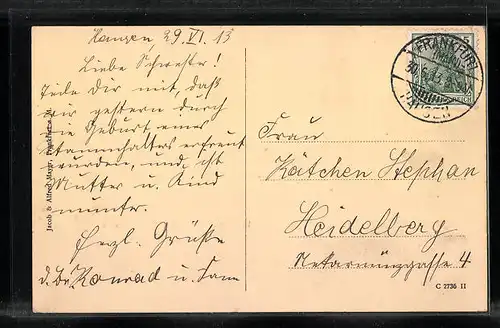 Hausen, 29. VI. 13
Liebe Schwester!
Teile Dir mit, daß
wir gestern durch
die Geburt eines
Stammhalters erfreut
wurden, und ist
Mutter u. Kind
munter.
Herzl. Grüße
Konrad u. Fam
Jacob & Alfred Mayer, Frankfurt a. M.
FRANKFURT
HAUSEN
Frau
Kätchen Stephan
Heidelberg
4
C 2736 II